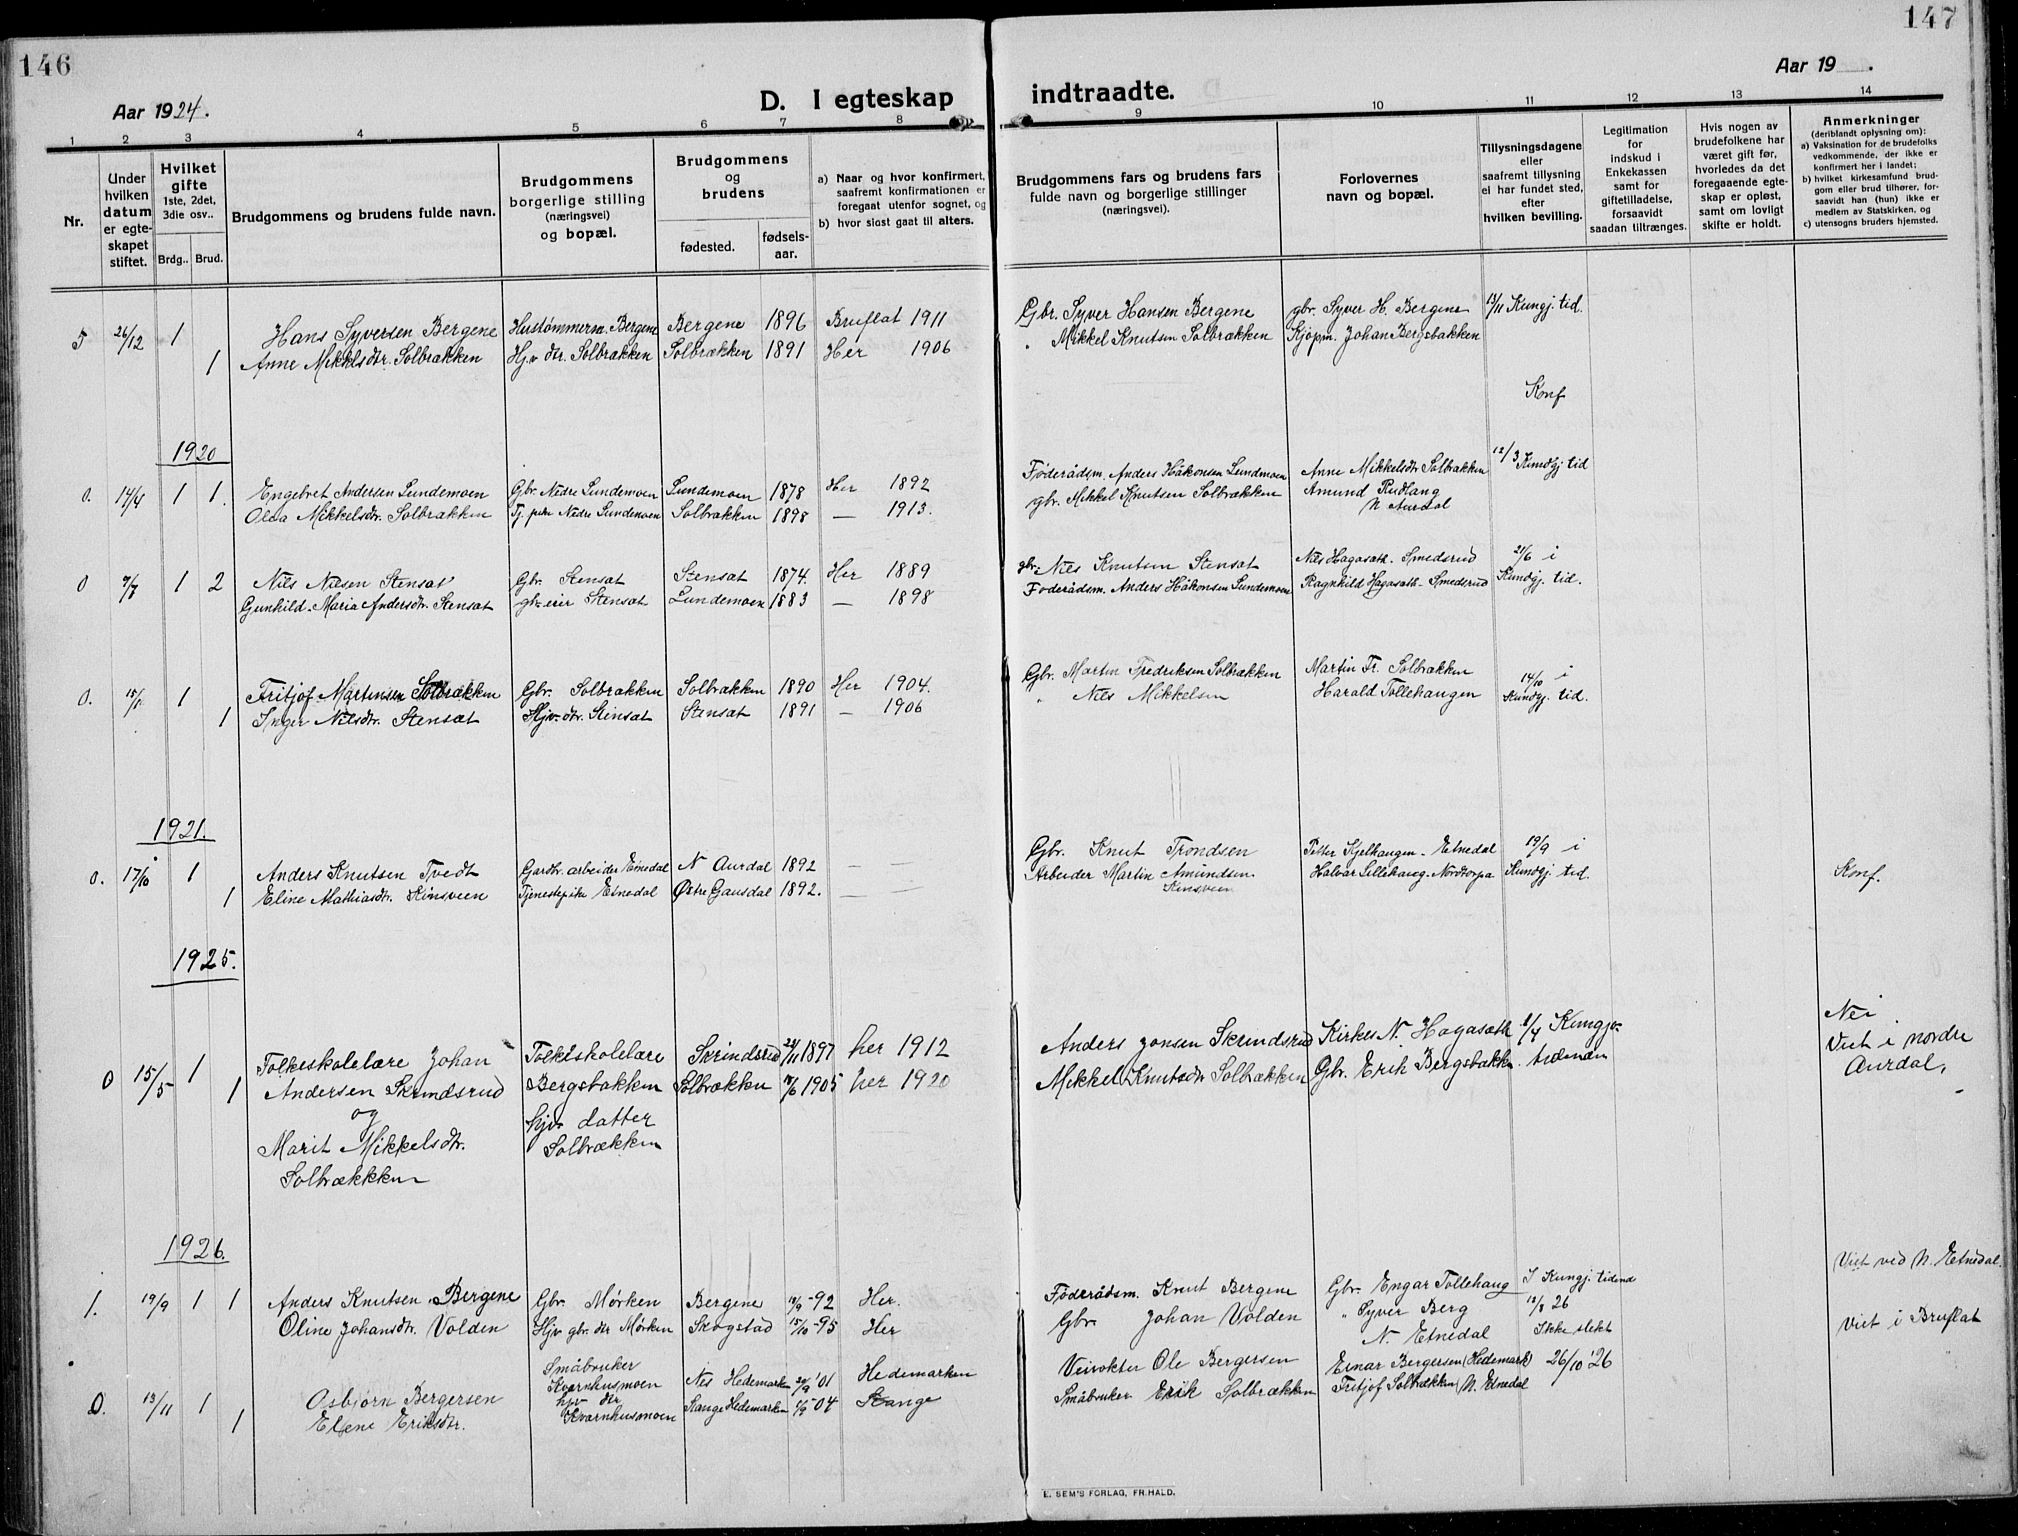 146
147
Aar 1924.
D. I egteskap indtraadte.
Aar 19 .
1 2 3 4 5 6 7 8 9 10 11 12 13 14
Nr.
Under hvilken datum er egteskapet stiftet.
Hvilket gifte 1ste, 2det, 3die osv..
Brdg.. Brud.
Brudgommens og brudens fulde navn.
Brudgommens borgerlige stilling (næringsvei) og bopæl.
Brudgommens og brudens
fødested. fødsels-aar.
a) Naar og hvor konfirmert, saafremt konfirmationen er foregaat utenfor sognet, og
b) hvor sidst gaat til alters.
Brudgommens fars og brudens fars fulde navn og borgerlige stillinger (næringsvei).
Forlovernes navn og bopæl.
Tillysningsdagene eller saafremt tillysning ei har fundet sted, efter hvilken bevilling.
Legitimation for indskud i Enkekassen samt for giftetilladelse, forsaavidt saadan tiltrænges.
Hvis nogen av brudefolkene har været gift før, hvorledes da det foregaaende egteskap er opløst, samt om lovligt skifte er holdt.
Anmerkninger (deriblandt oplysning om):
a) Vaksination for de brudefolks vedkommende, der ikke er konfirmert her i landet;
b) hvilket kirkesamfund brudgom eller brud tilhører, forsaavidt han (hun) ikke er medlem av Statskirken, og
c) utensogns bruders hjemsted.
5 26/12 1 Hans Syversen Bergene Hustømmerm. Bergene Bergene 1896 Bruflat 1911 Gbr. Syver Hansen Bergene gbr. Syver H. Bergene 13/11 Kungj. tid.
1 Anne Mikkelsdtr. Solbrækken Hj.v. dtr. Solbrækken Solbrækken 1891 Her 1906 " Mikkel Knutsen Solbrækken Kjøpm. Johan Bergsbakken
Konf
1920
0. 14/4 1 1. Engebret Andersen Lundemoen Gbr. Nedre Lundemoen Lundemoen 1878 Her 1892 Føderådsm. Anders Håkonsen Lundemoen Anne Mikkelsdtr Solbrækken 12/3 Kundgj. tid
Olea Mikkelsdtr. Solbrækken Tj. pike Nedre Lundemoen Solbrækken 1898 — 1913. gbr. Mikkel Knutsen Solbrækken Amund Rudlang
N Aurdal
0 7/7 1 2 Nils Nilsen Stensæt Gbr. Stensæt Stensæt 1874. Her 1889 gbr. Nils Knutsen Stensæt Nils Hagasæth. Smedsrud 21/6 i
Gunhild Maria Andersdtr. Stensæt gbr. eier Stensæt Lundemoen 1883 — 1898 Føderådsm. Anders Håkonsen Lundemoen Ragnhild Hagasæth. Smedsrud Kundgj. tid.
0. 1 Fritjof Martinsen Solbrækken Gbr. Solbrækken Solbrækken 1890 Her 1904. Gbr. Martin Fredriksen Solbrækken Martin Fr. Solbrækken 14/10 i
1 Inger Nilsdtr. Stensæt Hjv. dtr. Stensæt Stensæt 1891 — 1906 " Nils Mikkelsen Harald Tollehaugen Kundgj. tid.
1921.
0. 17/10 1 Anders Knutsen Tvedt Gardsarbeider Etnedal N Aurdal 1892 — — Gbr. Knut Trondsen Petter Kjelhaugen - Etnedal 19/9 i
1 Eline Mathiasdtr. Kinsveen Tjenestepike Etnedal Østre Gausdal 1892. — Arbeider Martin Amundsen Halvar Lillehaug. Nordtorpa Kundgj. tid. Konf.
Kinsveen
1925.
0 15/5 1 Folkeskolelære Johan Folkeskolelære Skrindsrud 24/11 1897 her 1912 Anders Jonsen Skrindsrud Kirkes. N. Hagasæth 1/4 Kungjø- Nei
1 Andersen Skrindsrud Bergsbakken Solbrækken 17/6 1905 her 1920 Mikkel Knutsdtr Solbrækken Gbr. Erik Bergsbakken. tidenden Viet i nordre
og hjv. datter Aurdal.
Marit Mikkelsdtr. Solbrækken
Solbrækkken
1926.
1. 19/9 1 1 Anders Knutsen Bergene Gbr. Mørken Bergene 12/9-92 Her. Føderådsm. Knut Bergene Gbr. Engar Tollehaug I Kungj. tidend Viet ved N. Etnedal.
Oline Johansdtr. Volden Hjv gbr. dtr Mørken Skogstad 15/10-95 Her Gbr. Johan Volden " Syver Berg 12/8 26 Viet i Bruflat
N. Etnedal Ikke slekt
0. 13/11 1 Osbjørn Bergersen Småbruker Kvarnhusmoen Nes Hedemark 29/9 '01 Hedemarken Veivokter Ole Bergersen Einar Bergersen (Hedemark) 26/10 '26
1 Elene Eriksdtr. hjv dtr Kvarnhusmoen Stange Hedemarken 1/9-04 Stange Småbruker Erik Solbrækken Fritjof Solbrækken N. Etnedal
E. SEM'S FORLAG, FR.HALD.